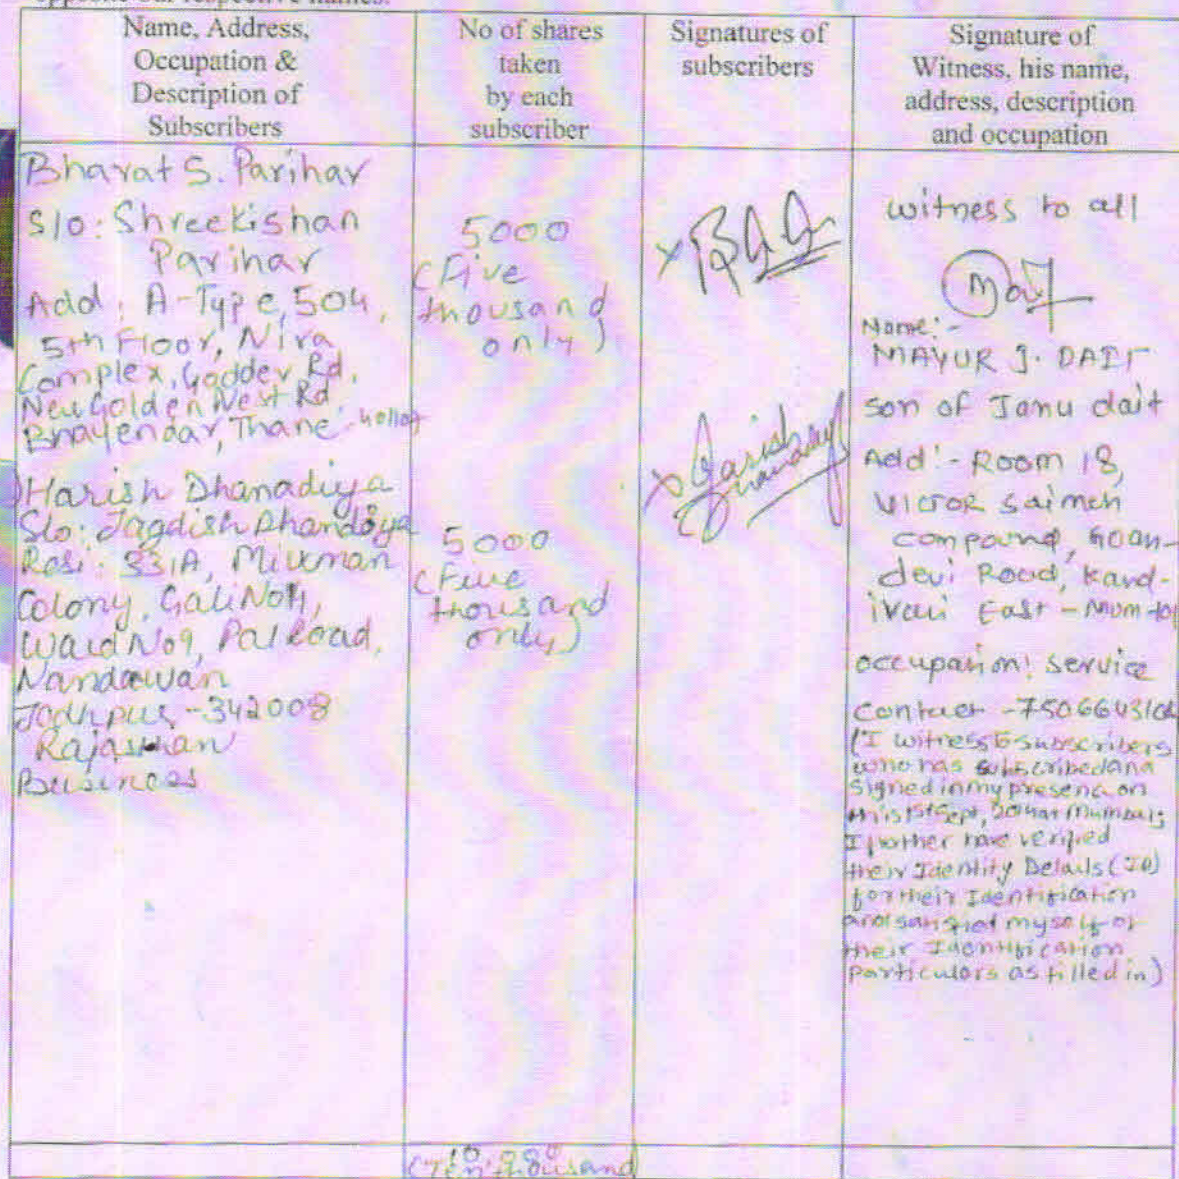 Name, Address,
Occupation &
Description of
Subscribers
No of shares
taken
by each
subscriber
Signatures of
subscribers
Signature of
Witness, his name,
address, description
and occupation
Bharat S. Parihar
S/o: Shreekishan
Parihar
Add: A-Type, 504,
5th Floor, Nira
Complex, Goddev Rd,
New Golden Nest Rd
Bhayendar, Thane-401107
5000
(Five
thousand
only)
Harish Dhanadiya
S/o: Jagdish Dhandiya
Resi: 331A, Milkman
Colony, Gali No 4,
Ward No 9, Pal Road,
Nandawan
Jodhpur - 342008
Rajasthan
Business
5000
(Five
thousand
only)
Harish
witness to all
Name:-
MAYUR J. DAIT
son of Janu dait
Add:- Room 18,
VICTOR Saimen
compound, Goan-
devi Road, Kand-
ivali East - Mum-101
occupation: service
Contact - 75066
(I witness to subscribers
who has subscribed and
signed in my presence on
this 1st Sept, at Mumbai;
I further have verified
their Identity Details (ID)
for their Identification
and satisfied myself of
their Identification
particulars as filled in)
10,000
(Ten thousand